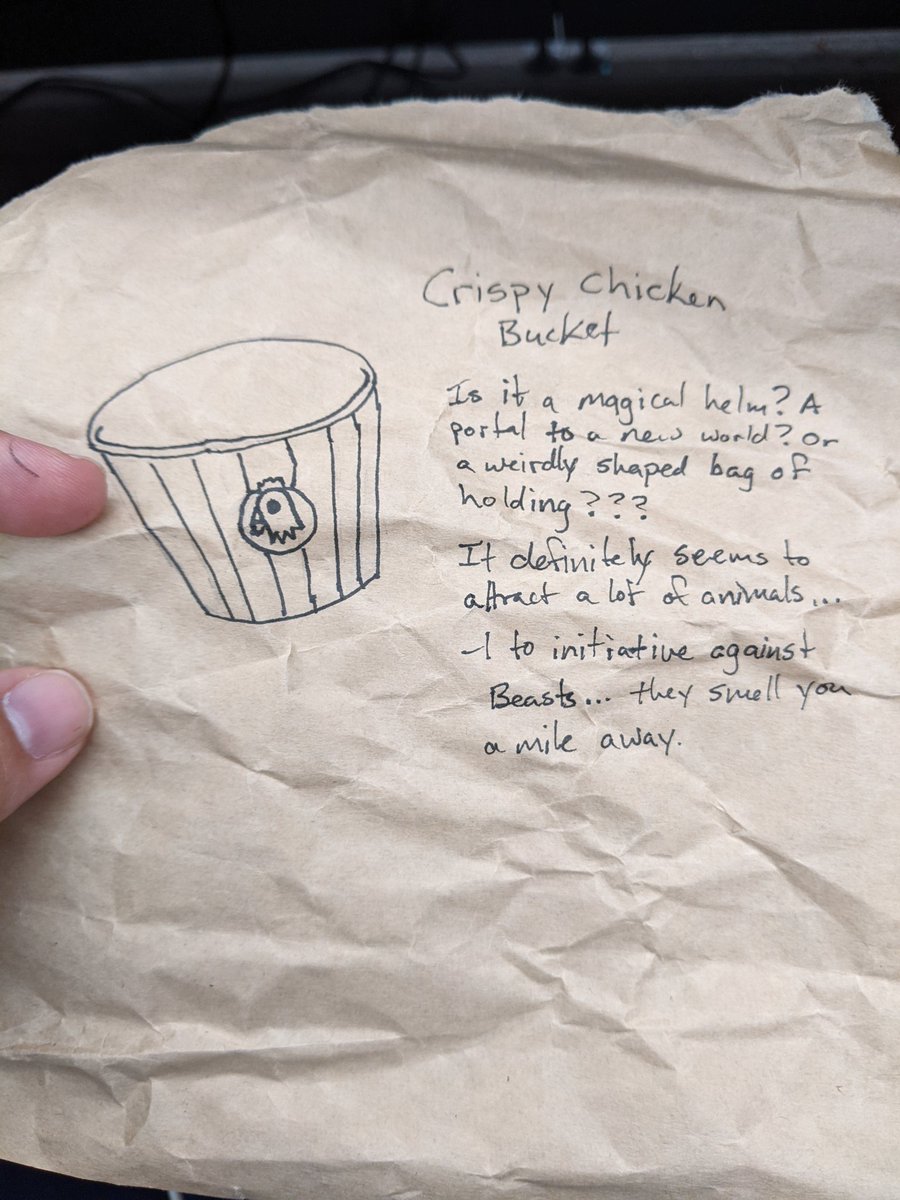 Crispy Chicken
Bucket
Is it a magical helm? A
portal to a new world? Or
a weirdly shaped bag of
holding???
It definitely seems to
attract a lot of animals...
-1 to initiative against
Beasts... they smell you
a mile away.